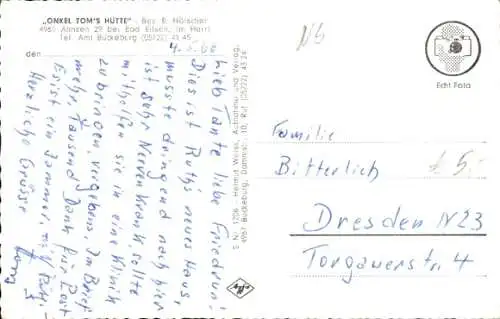 „ONKEL TOM'S HÜTTE" · Bes. E. Hölscher
4961 Ahnsen 29 bei Bad Eilsen, im Harrl
Tel. Amt Bückeburg (05722) 43 45
den
Lieb Tante, liebe Friedrun!
Dies ist Ruth's neues Haus,
musste dringend nach hier
ist sehr Nervenkrank sollte
mithelfen sie in eine Klinik
zu bringen, vergebens. Im Brief
mehr. Tausend Dank für Post
Es ist ein Jammer mit
Herzliche Grüsse
S Nr. 1706 · Helmut Weiss, Aufnahme und Verlag,
4967 Bückeburg, Dammstr. 10, Ruf (05722) 43 24
Agfa
Echt Foto
Familie
Bitterlich
5,-
Dresden N23
Torgauerstr. 4